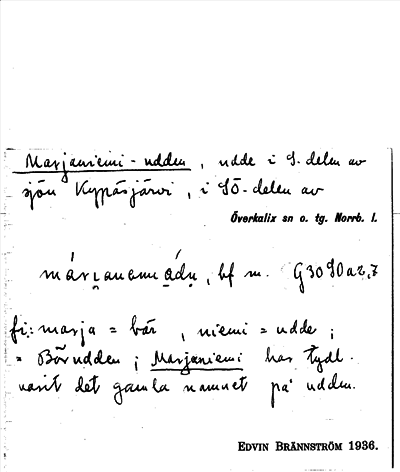 Marjaniemi-udden, udde i S.delen av
sjön Kyppäsjärvi, i SÖ-delen av
Överkalix sn o. tg. Norrb. l.
bf m. G3090a2,7
fi: marja = bär, niemi = udde;
= Bärudden; Marjaniemi har tydl.
varit det gamla namnet på udden.
EDVIN BRÄNNSTRÖM 1936.